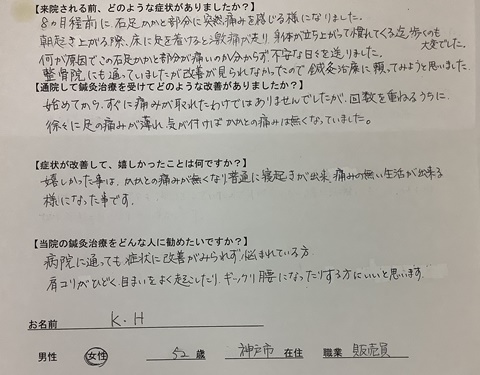 【来院される前、どのような症状がありましたか？】
8ヵ月程前に右足かかと部分に突然痛みを感じる様になりました。
朝起き上がる際、床に足を着けると激痛が走り、身体が立ち上がって慣れてくる迄歩くのも
大変でした。
何が原因でこの右足かかと部分が痛いのか分からず、不安な日々を送りました。
整骨院にも通っていましたが改善が見られなかったので鍼灸治療に頼ってみようと思いました。
【通院して鍼灸治療を受けてどのような改善がありましたか？】
始めてから、すぐに痛みが取れたわけではありませんでしたが、回数を重ねるうちに、
徐々に足の痛みが薄れ、気が付けばかかとの痛みは無くなっていました。
【症状が改善して、嬉しかったことは何ですか？】
嬉しかった事は、かかとの痛みが無くなり普通に寝起きが出来、痛みの無い生活が出来る
様になった事です。
【当院の鍼灸治療をどんな人に勧めたいですか？】
病院に通っても症状に改善がみられず、悩まれている方
肩コリがひどく目まいをよく起こしたり、ギックリ腰になったりする方にいいと思います。
お名前 K・H
男性 女性 52 歳 神戸市 在住 職業 販売員